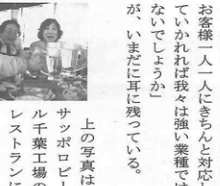 お客様一人一人にきちんと対応
ていかれれば我々は強い業種では
ないでしょうか」
が、いまだに耳に残っている。
上の写真は
サッポロビー
ル千葉工場の
レストランに